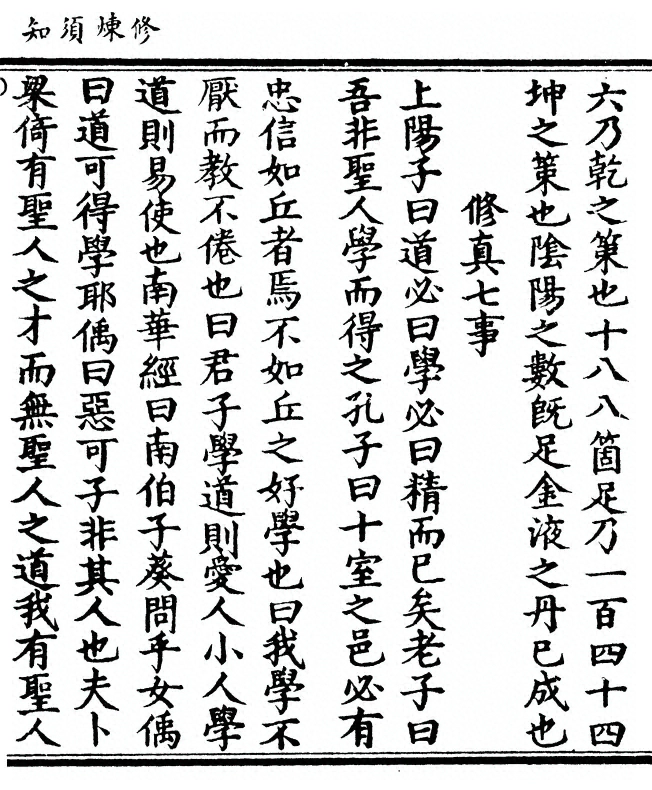 修煉須知
六乃乾之策也十八八箇足乃一百四十四
坤之策也陰陽之數旣足金液之丹已成也
修真七事
上陽子曰道必曰學必曰精而已矣老子曰
吾非聖人學而得之孔子曰十室之邑必有
忠信如丘者焉不如丘之好學也曰我學不
厭而教不倦也曰君子學道則愛人小人學
道則易使也南華經曰南伯子葵問乎女偊
曰道可得學耶偊曰惡可子非其人也夫卜
梁倚有聖人之才而無聖人之道我有聖人